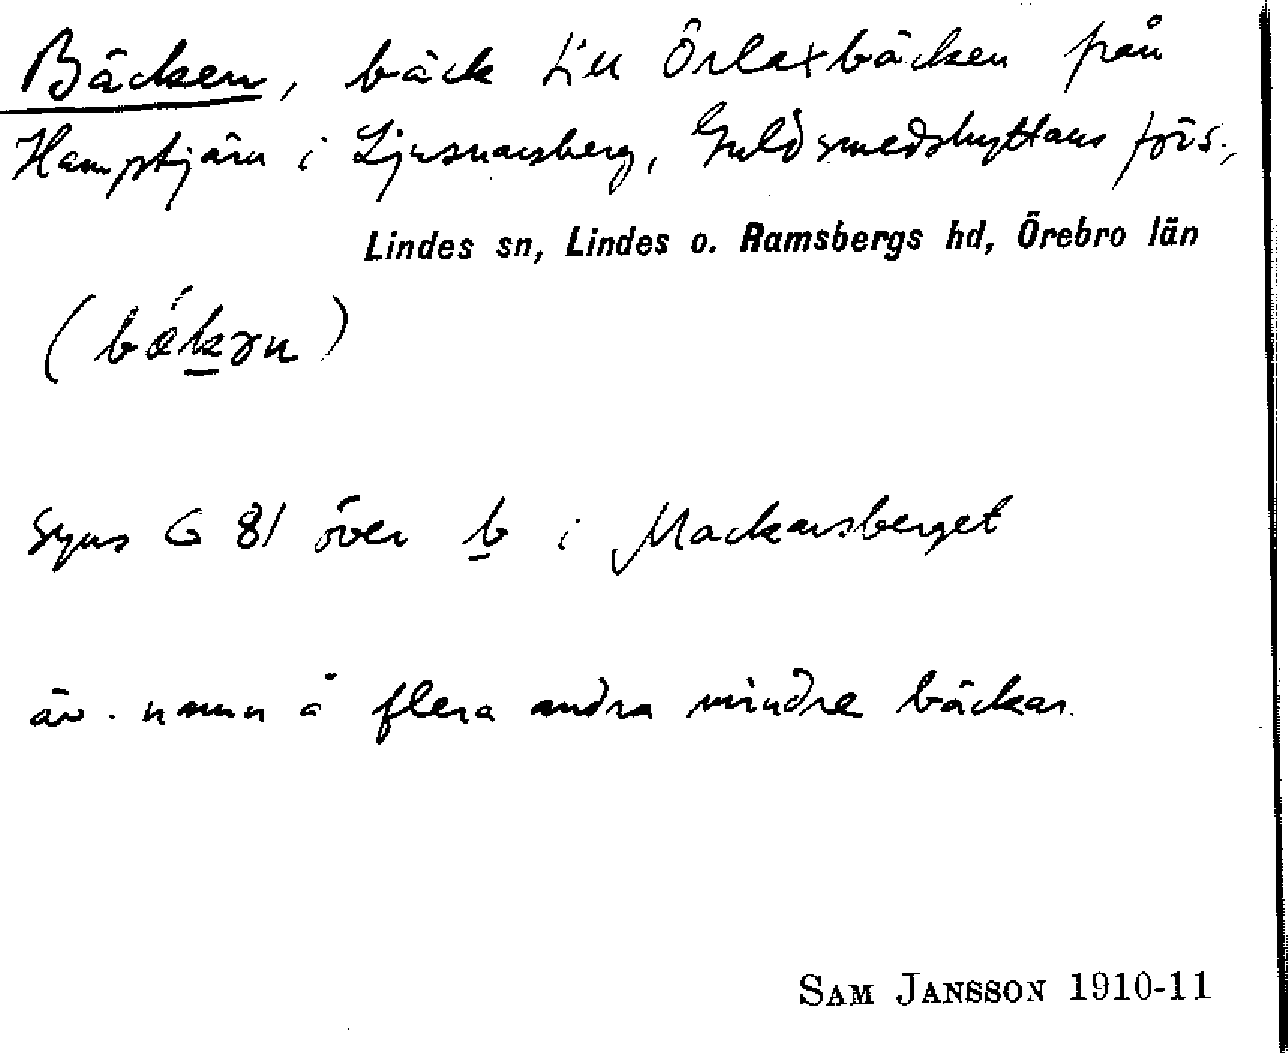 Bäcken, bäck till Örlaxbäcken från
Hamptjärn i Ljusnarsberg, Guldsmedshyttans förs.,
Lindes sn, Lindes o. Ramsbergs hd, Örebro län
(bäkən)
Syns G 81 över b i Mackarsberget
äv. namn å flera andra mindre bäckar.
SAM JANSSON 1910-11